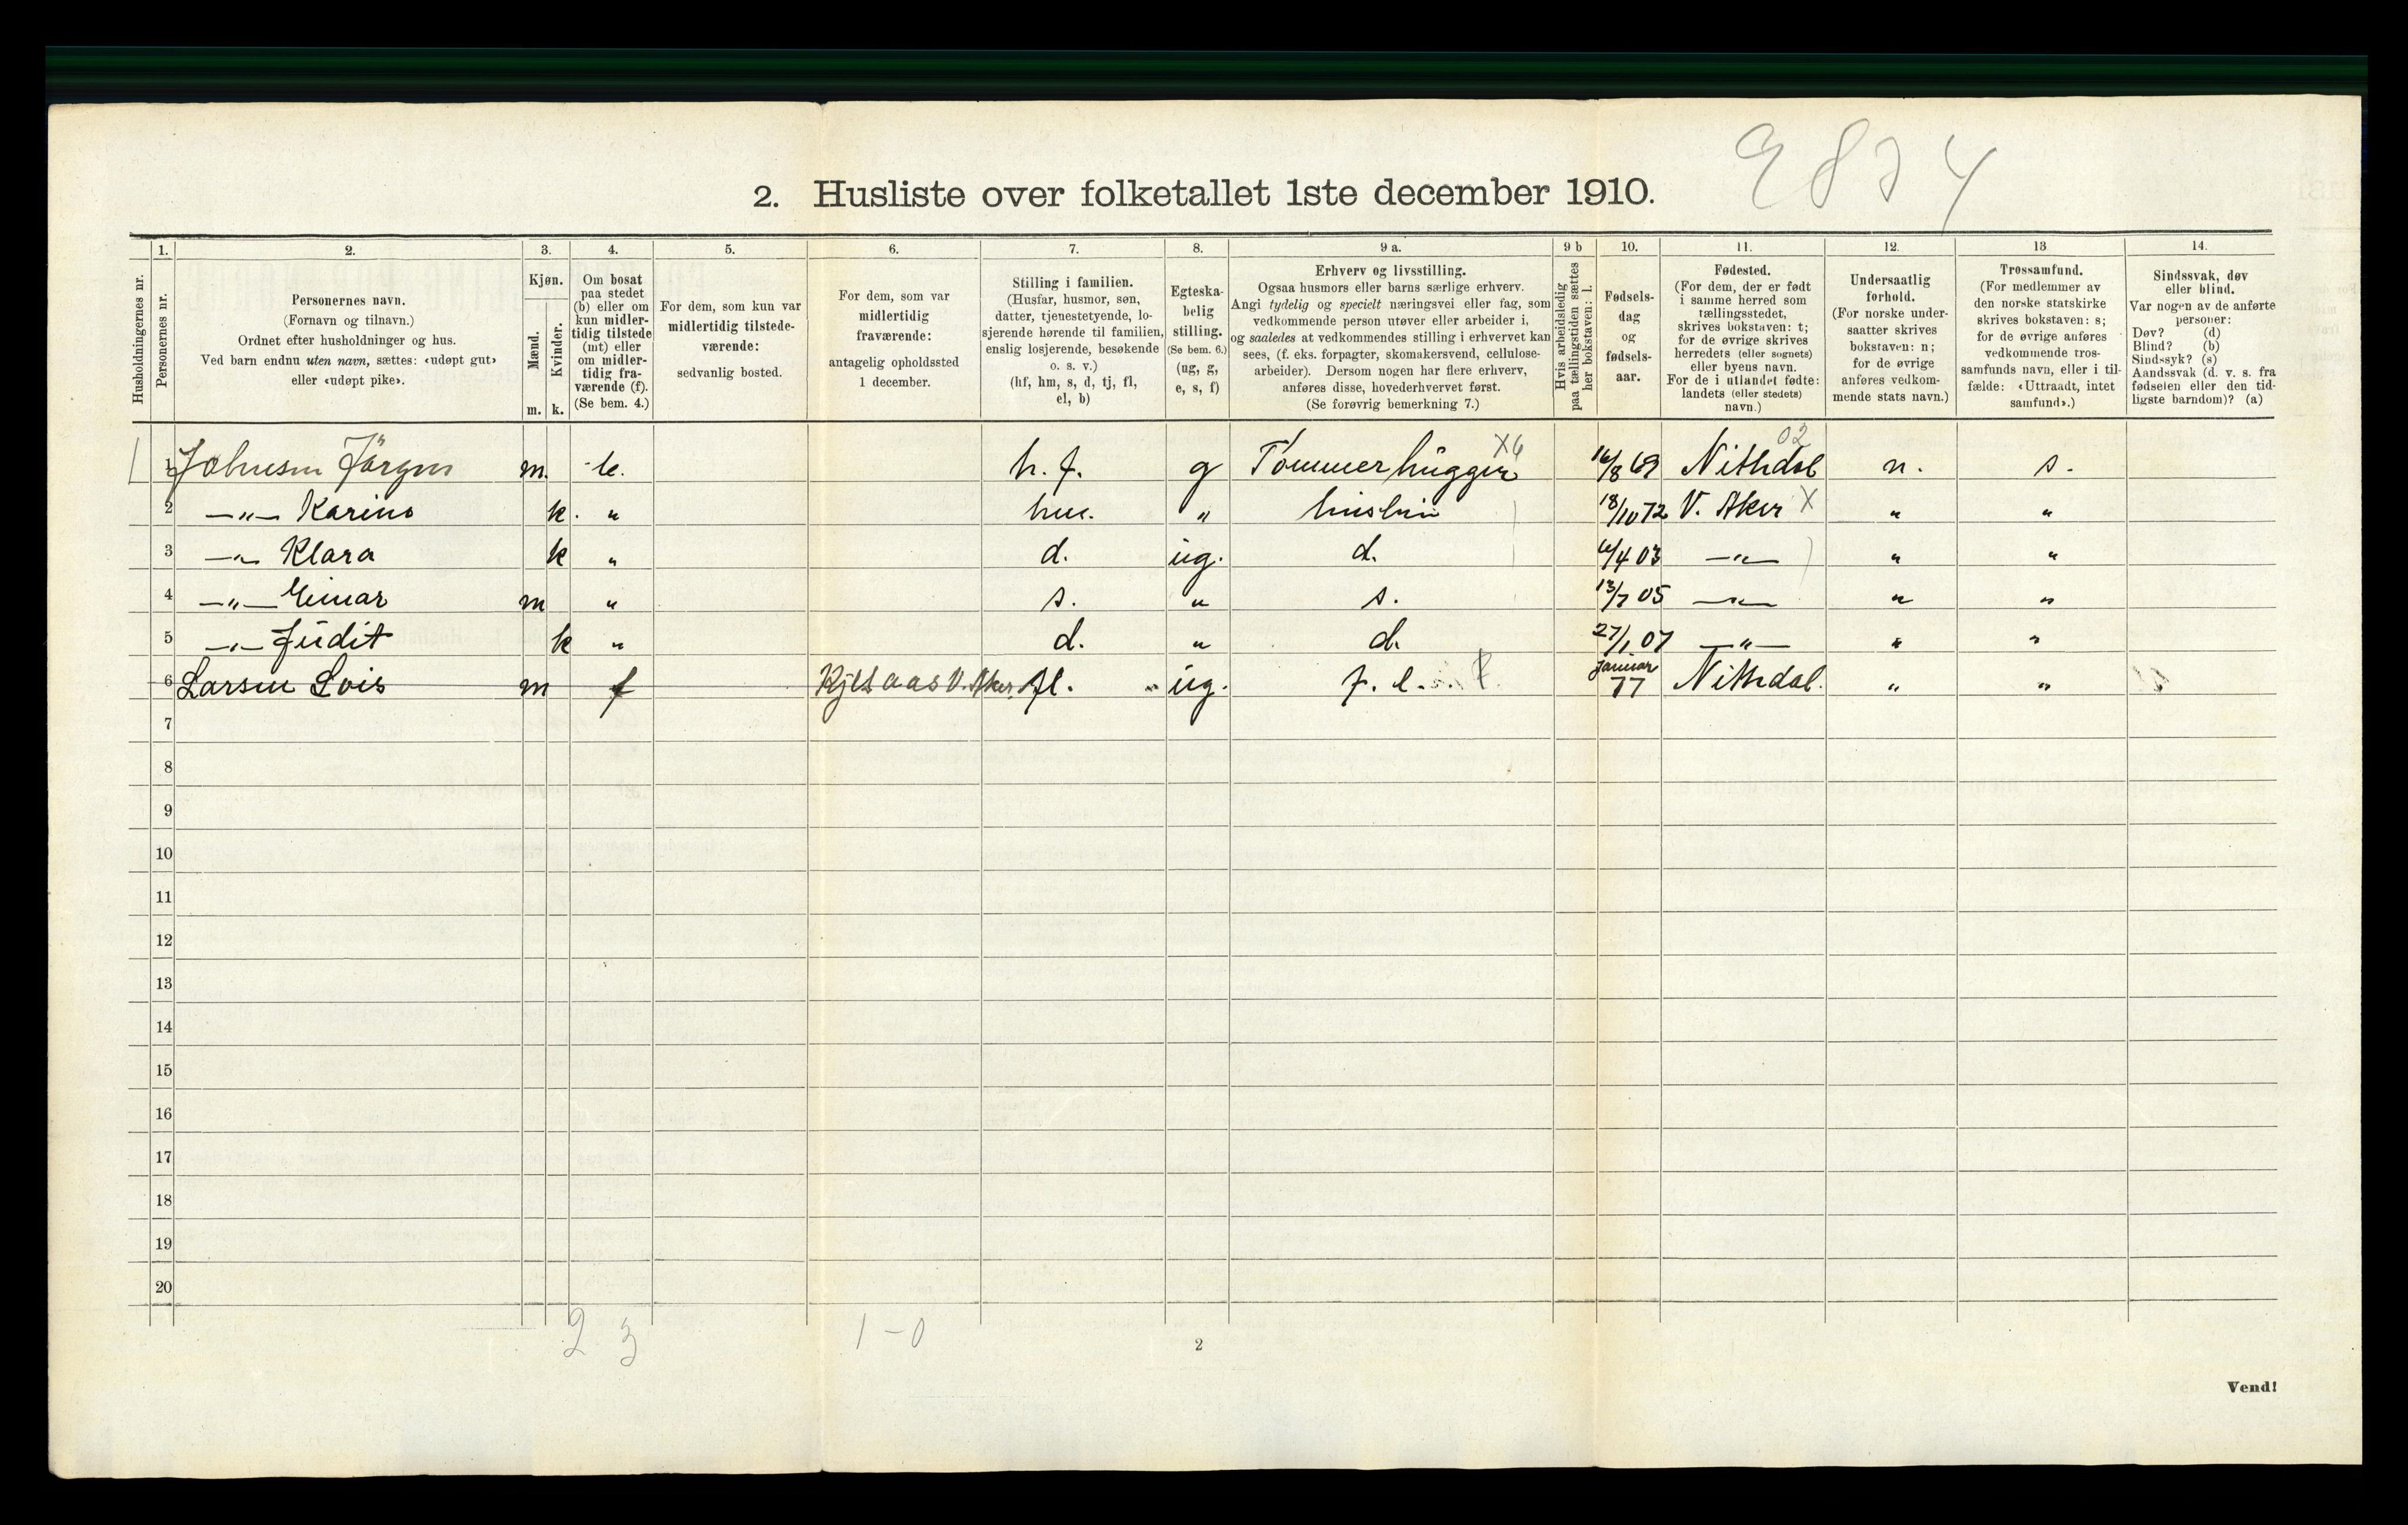 9874
2. Husliste over folketallet 1ste december 1910.
Husholdningernes nr.
1. Personernes nr.
2. Personernes navn. (Fornavn og tilnavn.) Ordnet efter husholdninger og hus. Ved barn endnu uten navn, sættes: «udøpt gut» eller «udøpt pike».
3. Kjøn. Mænd. m. Kvinder. k.
4. Om bosat paa stedet (b) eller om kun midlertidig tilstede (mt) eller om midlertidig fraværende (f). (Se bem. 4.)
5. For dem, som kun var midlertidig tilstedeværende: sedvanlig bosted.
6. For dem, som var midlertidig fraværende: antagelig opholdssted 1 december.
7. Stilling i familien. (Husfar, husmor, søn, datter, tjenestetyende, losjerende hørende til familien, enslig losjerende, besøkende o. s. v.) (hf, hm, s, d, tj, fl, el, b)
8. Egteskabelig stilling. (Se bem. 6.) (ug, g, e, s, f)
9 a. Erhverv og livsstilling. Ogsaa husmors eller barns særlige erhverv. Angi tydelig og specielt næringsvei eller fag, som vedkommende person utøver eller arbeider i, og saaledes at vedkommendes stilling i erhvervet kan sees, (f. eks. forpagter, skomakersvend, cellulosearbeider). Dersom nogen har flere erhverv, anføres disse, hovederhvervet først. (Se forøvrig bemerkning 7.)
9 b Hvis arbeidsledig paa tællingstiden sættes her bokstaven: l.
10. Fødselsdag og fødselsaar.
11. Fødested. (For dem, der er født i samme herred som tællingsstedet, skrives bokstaven: t; for de øvrige skrives herredets (eller sognets) eller byens navn. For de i utlandet fødte: landets (eller stedets) navn.)
12. Undersaatlig forhold. (For norske undersaatter skrives bokstaven: n; for de øvrige anføres vedkommende stats navn.)
13 Trossamfund. (For medlemmer av den norske statskirke skrives bokstaven: s; for de øvrige anføres vedkommende trossamfunds navn, eller i tilfælde: «Uttraadt, intet samfund».)
14. Sindssvak, døv eller blind. Var nogen av de anførte personer: Døv? (d) Blind? (b) Sindssyk? (s) Aandssvak (d. v. s. fra fødselen eller den tidligste barndom)? (a)
1 Johnsen Jörgen m. b. h. f. g Tømmerhugger X6 16/8 69 Nithdal 02 n. s.
2 —„— Karine k. „ hm. „ 18/10 72 V. Aker X „ „
3 —„— Klara k „ d. ug. d. 4 03 —„— „ „
4 —„— Einar m „ s. „ s. 13/7 05 —„— „ „
5 —„— Judit k „ d. „ d. 27/1 07 —„— „ „
6 Larsen Lois m f Kjelsaas V. Aker fl. ug. f. l. Januar 77 Nithdal. „ „
7
8
9
10
11
12
13
14
15
16
17
18
19
20
2 3 1 – 0
2
Vend!